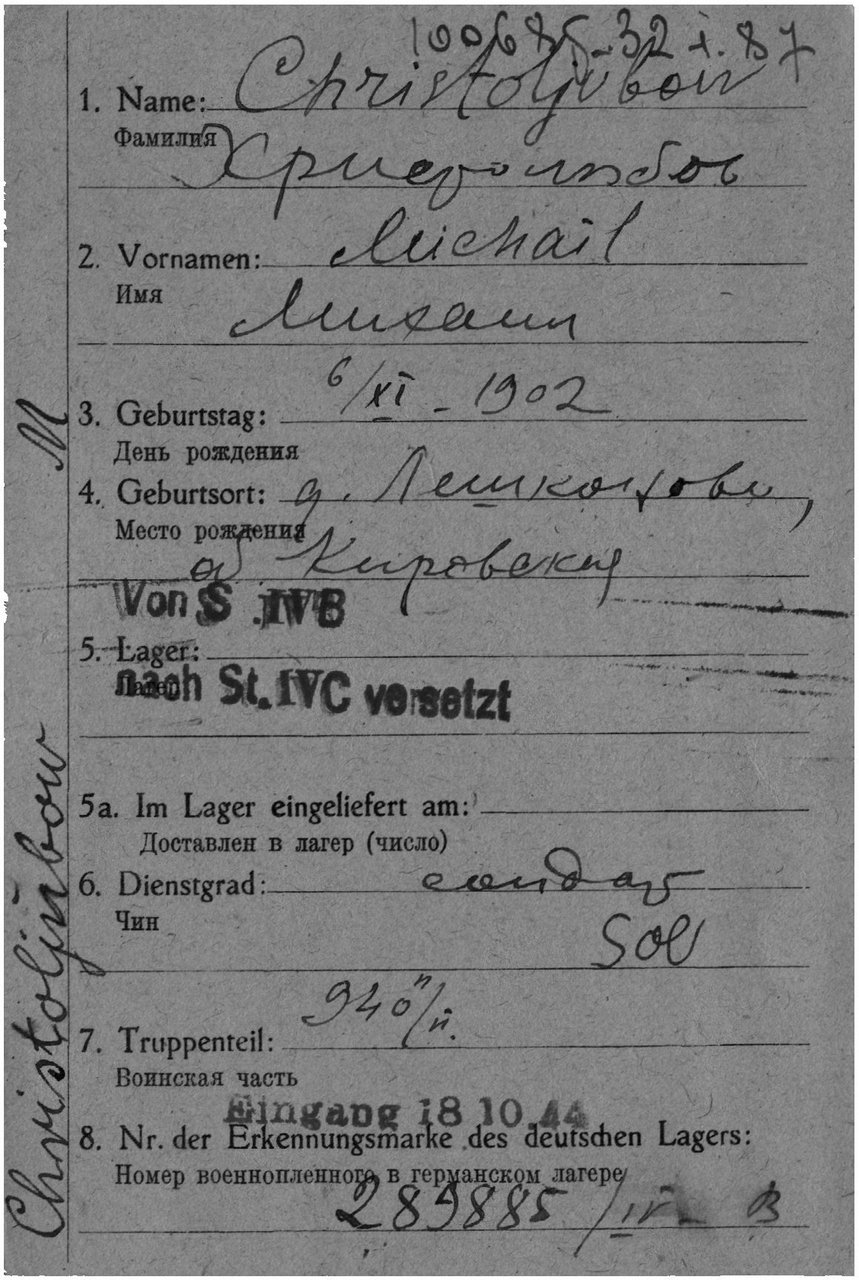 100685-32 X. 87
1. Name: Christoljubow
Фамилия
Христолюбов
2. Vornamen: Michail
Имя
Михаил
3. Geburtstag: 6/XI - 1902
День рождения
4. Geburtsort: д.
Место рождения
об Кировская
Von S .IVB
5. Lager:
Лагерь
nach St. IVC versetzt
5a. Im Lager eingeliefert am:
Доставлен в лагер (число)
6. Dienstgrad: солдат
Чин
Sol
7. Truppenteil: 940 п/п.
Воинская часть
Eingang 18 10.44
8. Nr. der Erkennungsmarke des deutschen Lagers:
Номер военнопленного в германском лагере
289885 / IV - B
Christoljubow M